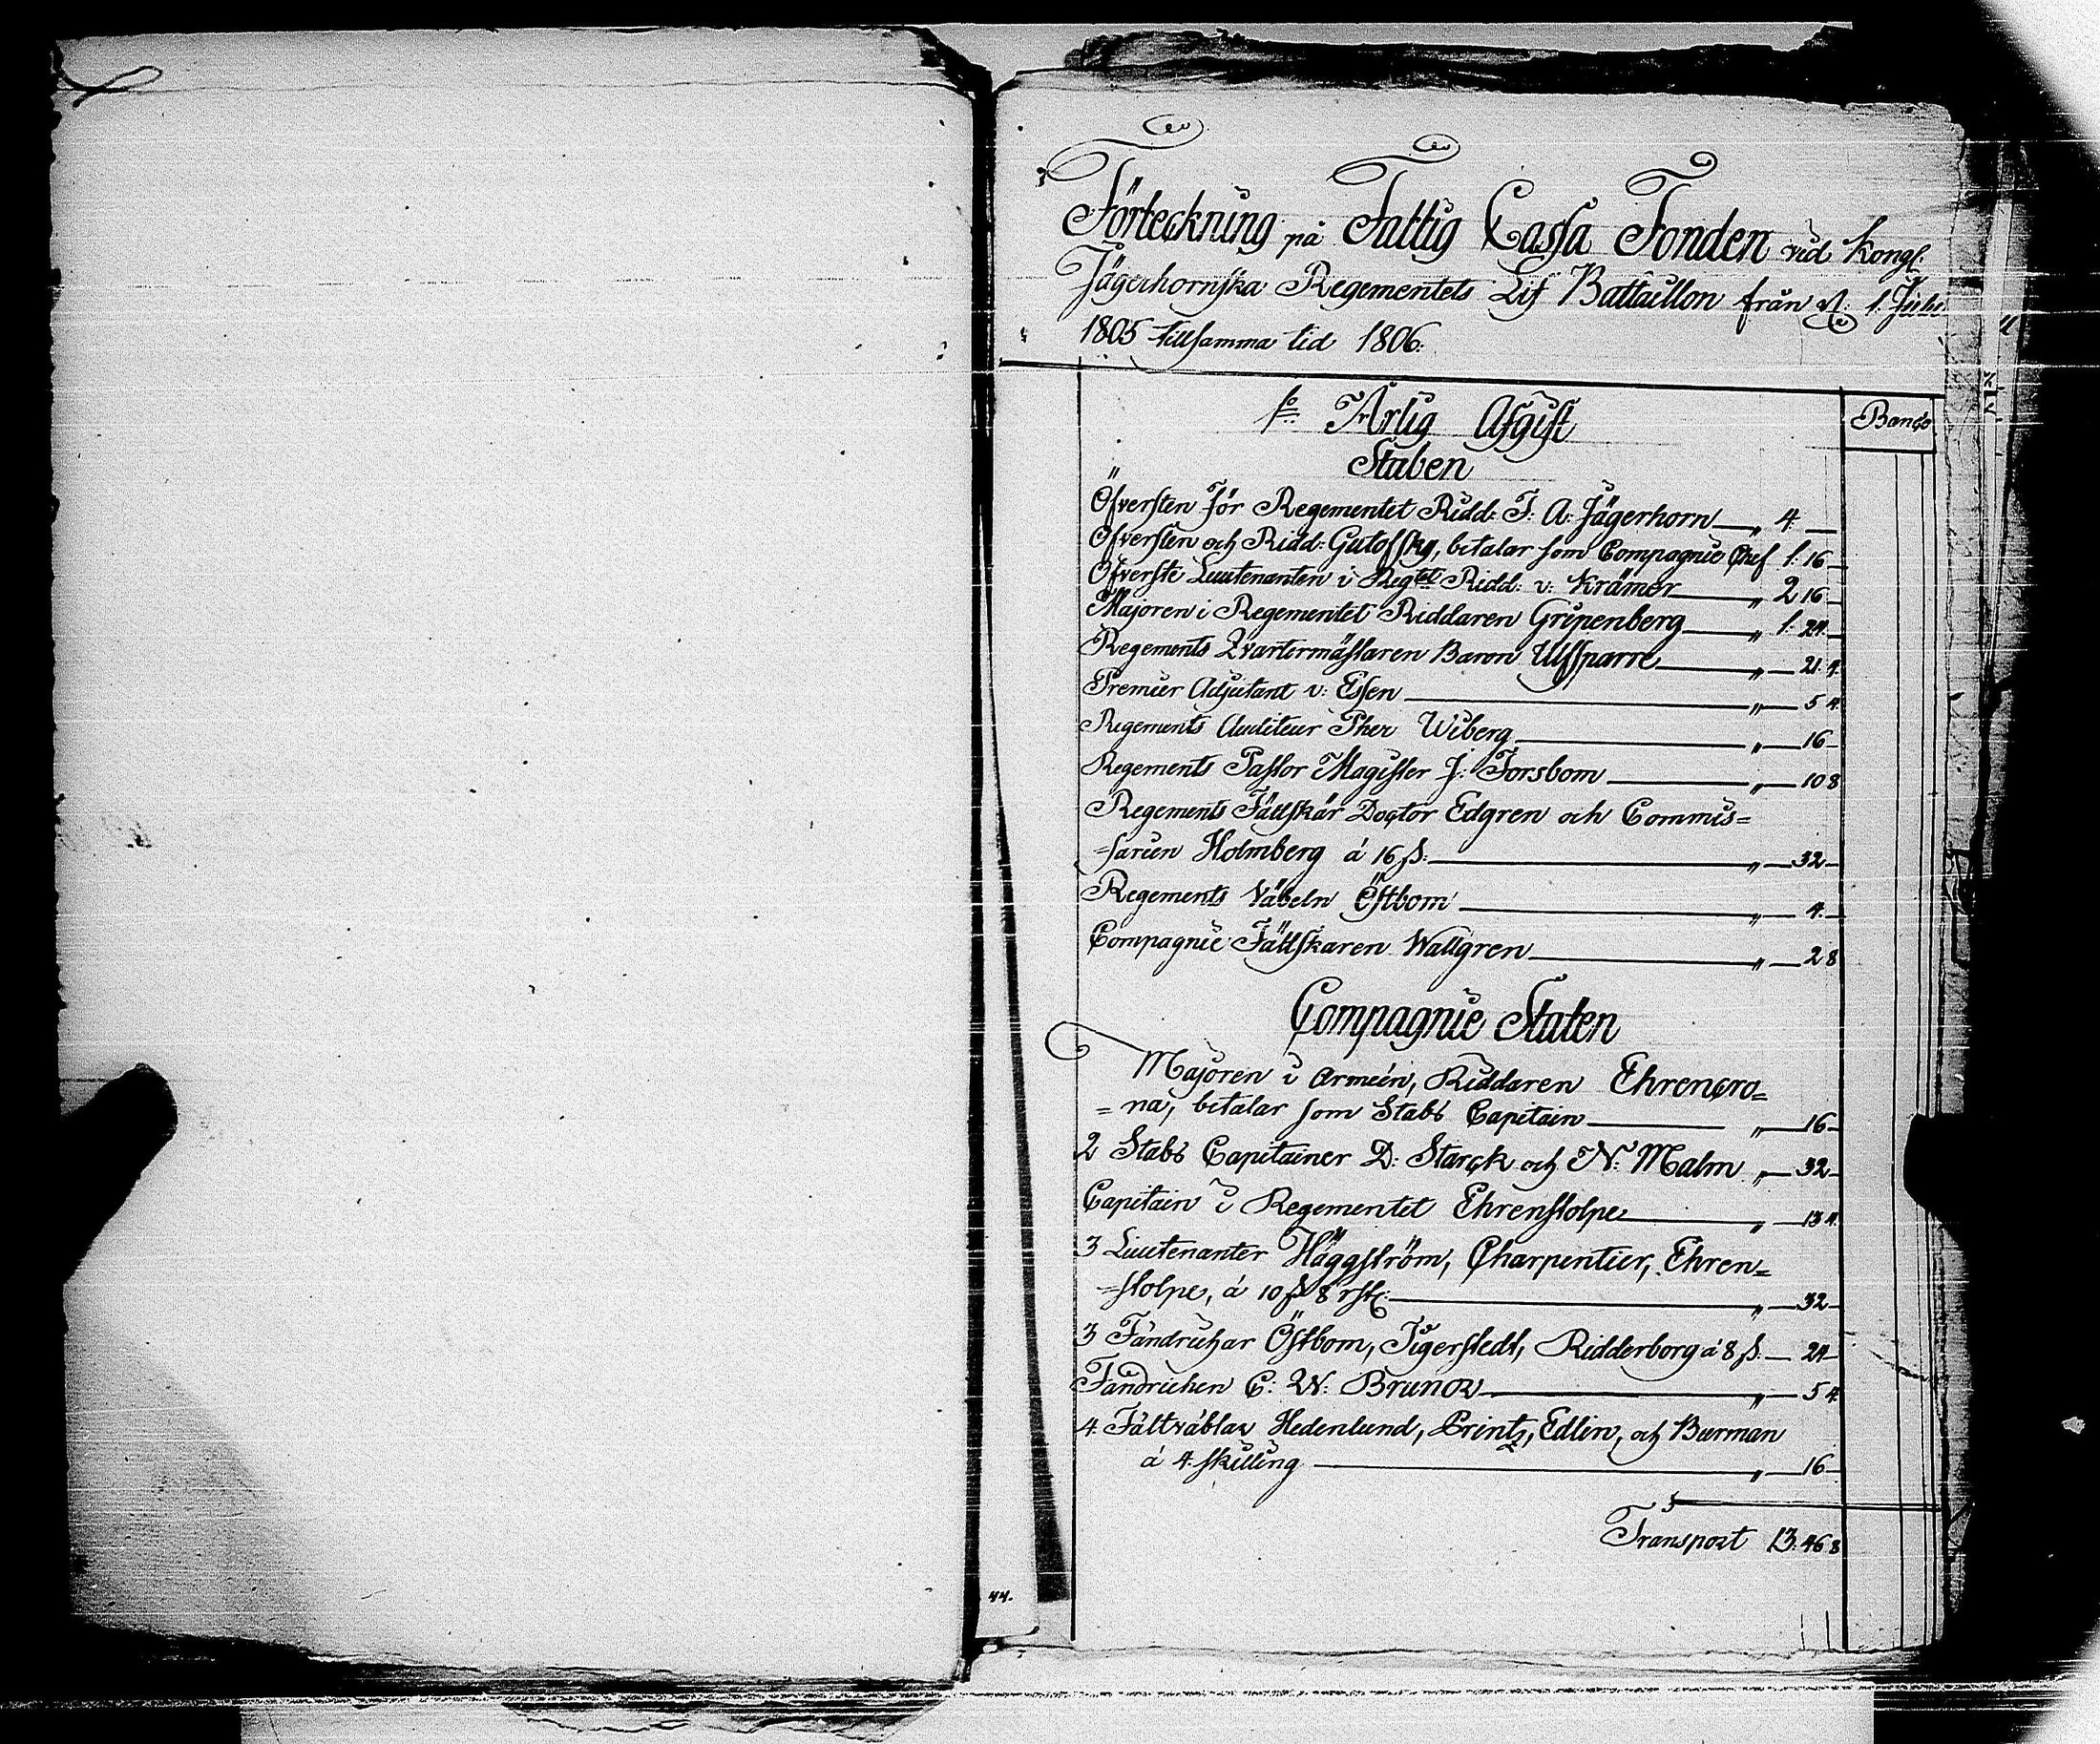 Förteckning på Fattig Cassa Fonden vid Kongl:
Jägerhornska Regementets Lif Battaillon från d: 1. Julii
1805 till samma tid 1806.
Banco
1o Årlig Afgift
Staben
Öfversten för Regementet Ridd: F: A: Jägerhorn „ 4. —
Öfversten och Ridd: Gutofsky, betalar som Compagnie Chef 1: 16 —
Öfverste Lieutenanten i Regtet Ridd: v: Krämer „ 2 16 —
Majoren i Regementet Riddaren Gripenberg „ 1: 24. —
Regements Qvartermästaren Baron Ulfsparre „ — 21. 4.
Premier Adjutant v: Essen „ — 5 4
Regements Auditeur Wiberg „ — 16 —
Regements Pastor Magister J: Forsbom „ — 10 8
Regements Fältskär Doctor Edgren och Commis=
=sarien Holmberg á 16 ß: „ — 32 —
Regements Väbeln Östbom „ — 4. —
Compagnie Fältskaren Wallgren „ — 2 8
Compagnie Staten
Majoren i Arméen, Riddaren Ehrencro=
=na, betalar som Stabs Capitain „ — 16 —
2 Stabs Capitainer D: Starck och N: Malm „ — 32 —
Capitain i Regementet Ehrenstolpe „ — 13 4.
3 Lieutenanter Häggström, Charpentier, Ehren=
=stolpe, á 10 ß 8 rst: „ — 32 —
3 Fändrichar Östbom, Tigerstedt, Ridderborg á 8 ß. — 24 —
Fändrichen C: W: Brunow „ — 5 4
4. Fältväblar Hedenlund, Printz, Edlin, och Burman
á 4. skilling „ — 16 —
Transport 13. 46 8
44.